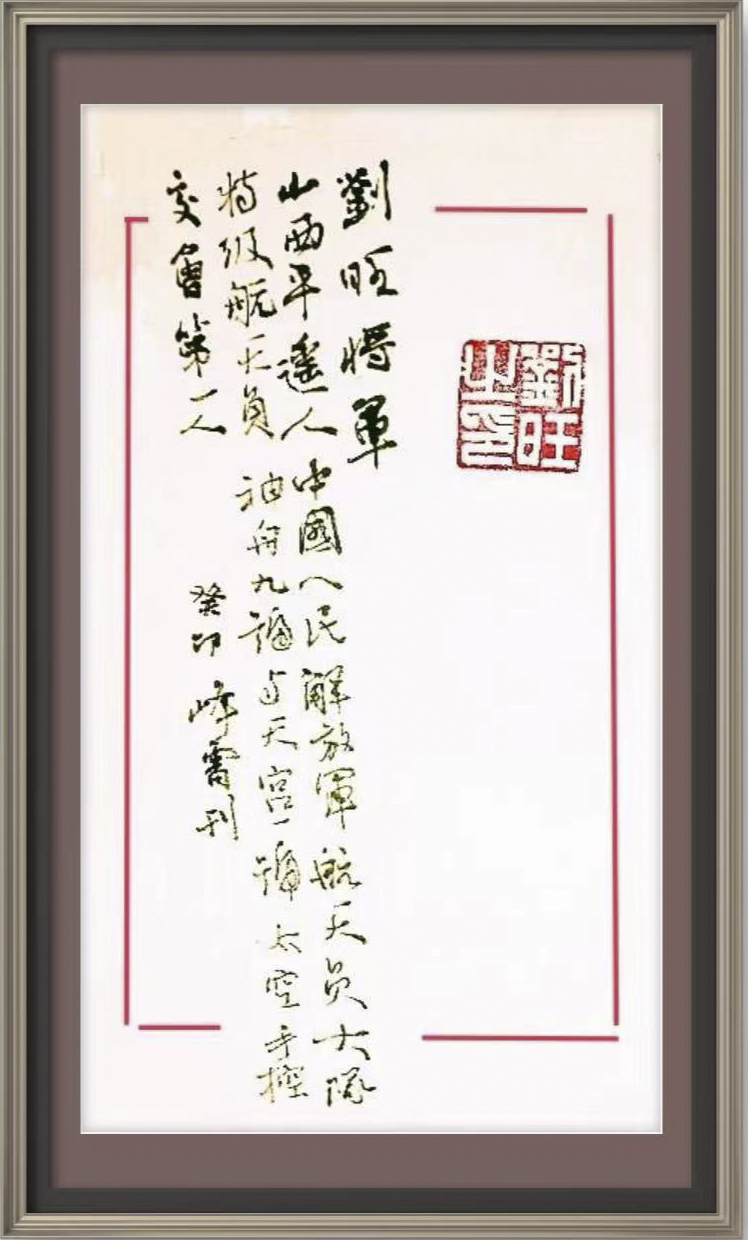 劉旺之印
劉旺將軍
山西平遙人 中國人民解放軍航天员大隊
特级航天員 神舟九號与天宫一號太空手控
交會第一人 癸卯 峰刊